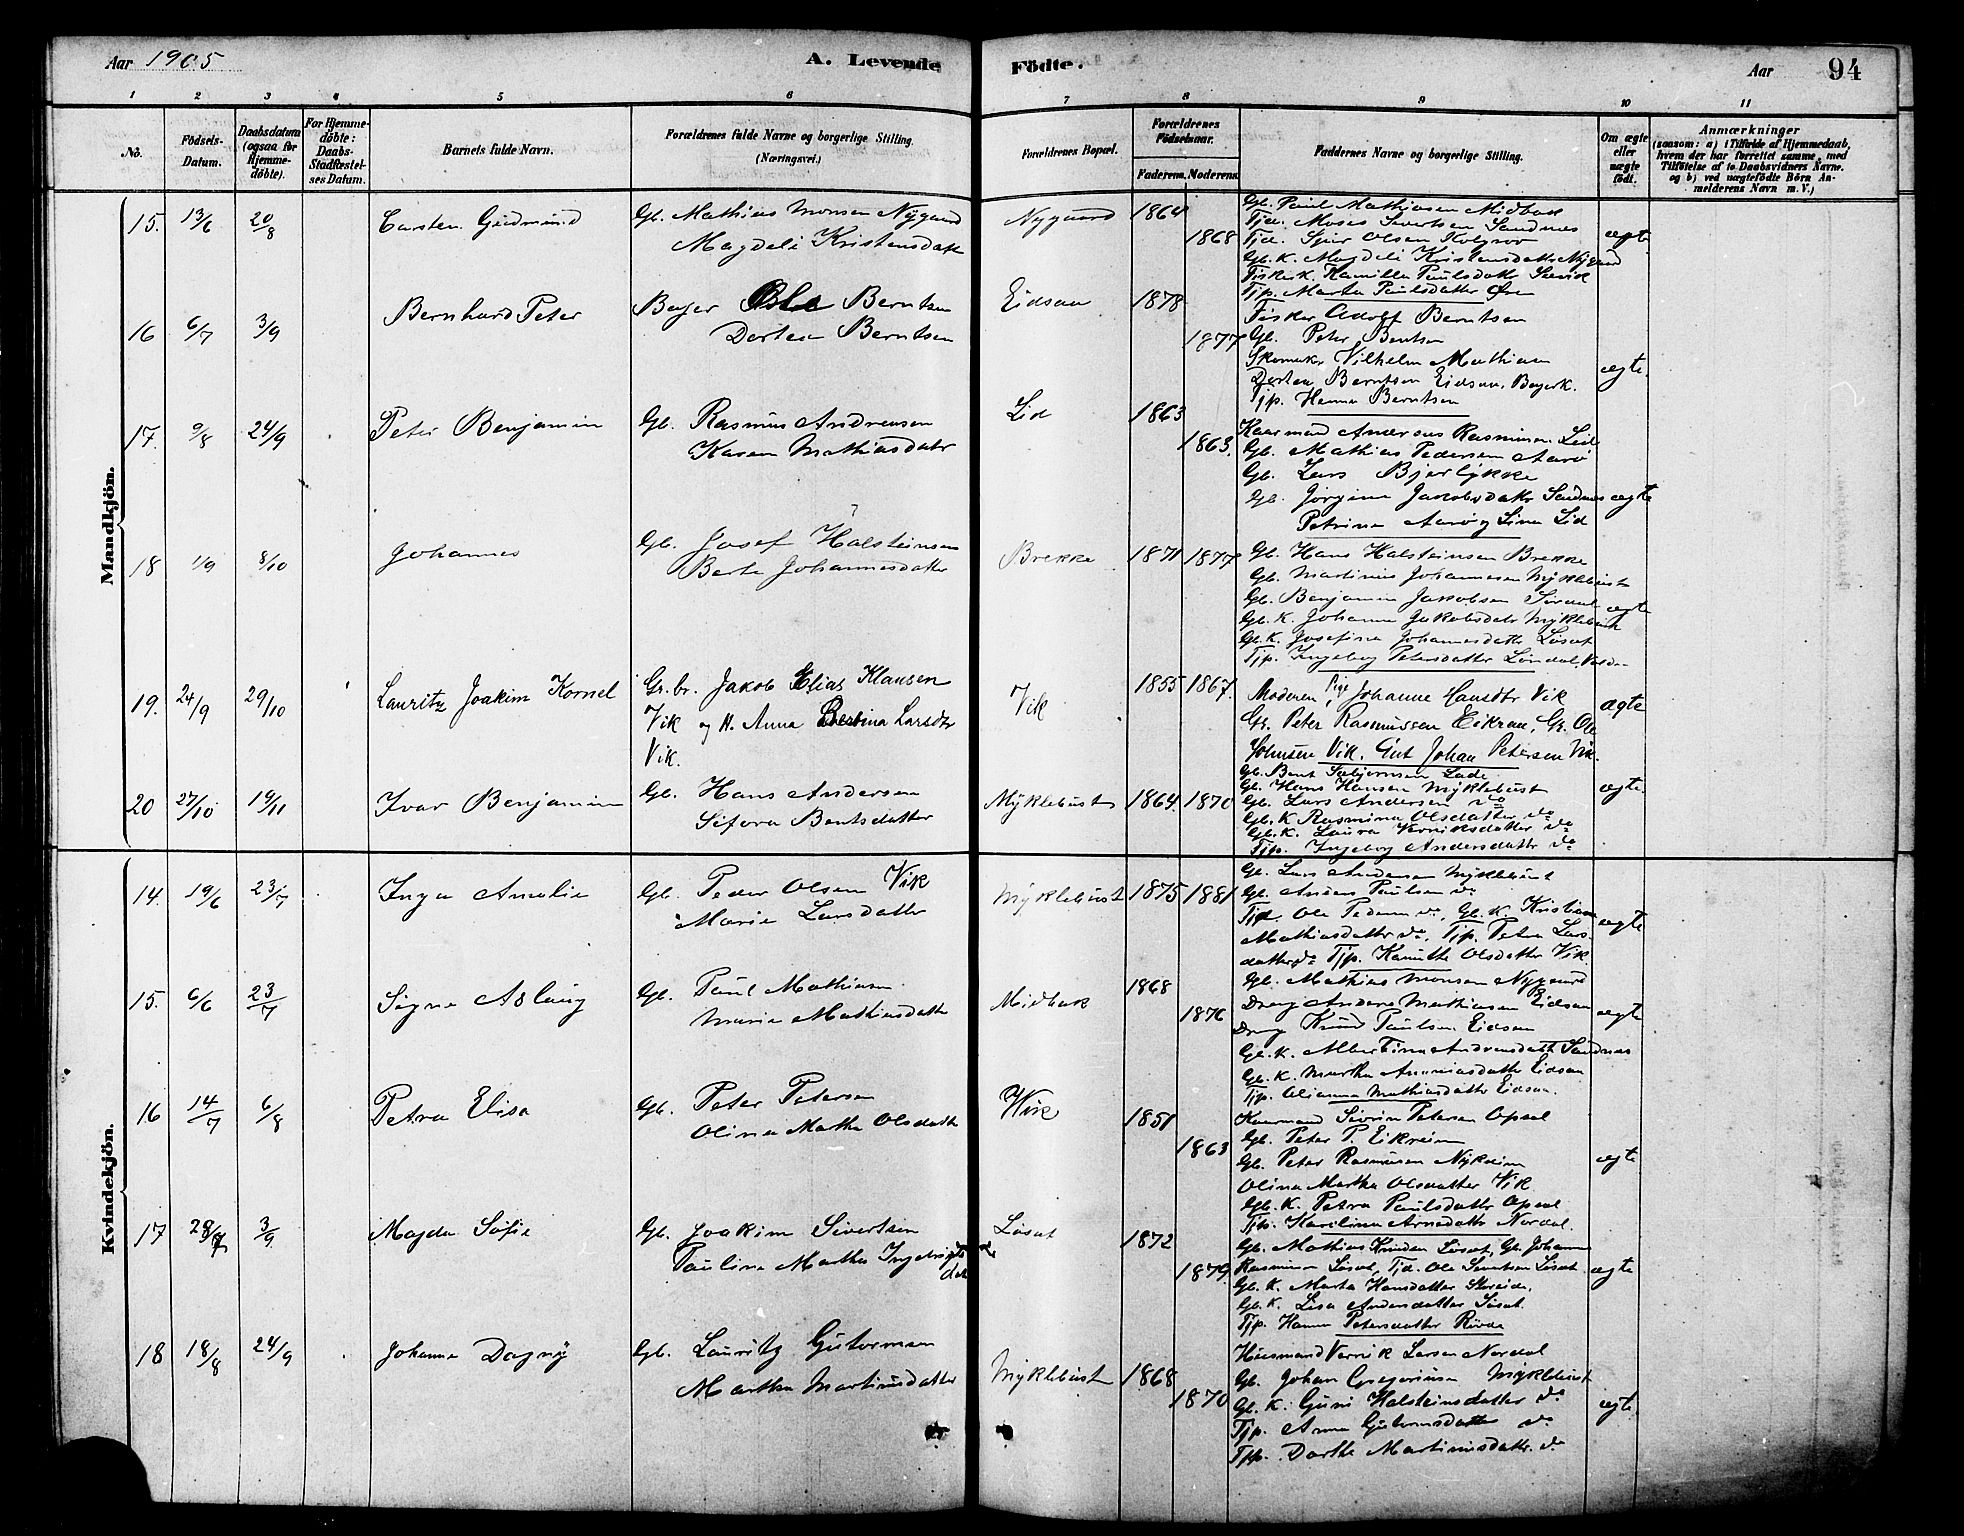 Aar 1905
A. Levende
Födte.
Aar
94
1 2 3 4 5 6 7 8 9 10 11
No.
Födsels-Datum.
Daabsdatum (ogsaa for Hjemme-döbte).
For Hjemme-döbte: Daabs-Stadfæstel-ses Datum.
Barnets fulde Navn.
Forældrenes fulde Navne og borgerlige Stilling.
(Næringsvei.)
Forældrenes Bopæl.
Forældrenes Födselsaar.
Faderens. Moderens.
Faddernes Navne og borgerlige Stilling.
Om ægte eller uægte født.
Anmærkninger
(saasom: a) i Tilfælde af Hjemmedaab,
hvem der har forrettet samme, med
Tilföielse af to Daabsvidners Navne.
og b) ved uægtefödte Börn An-
melderens Navn m. V.)
Mandkjön.
15. 13/6 20/8 Carsten Gudmund
Gb. Mathias Monsen Nygaard
Magdeli Kristensdatt
Nygaard 1864 1868
Gb. Paul Mathiasen Midbøe
Tjd. Moses Sivertsen Sandnes
Tjd. Sjur Olsen
Gb. K. Magdeli Kristensdatter Nygaard
Fiskerk. Kamilla Paulsdatter
Tjp. Marta Paulsdatter
ægte
16 6/7 3/9 Bernhard Peter
Ole Berntsen
Dortea Berntsen
Eidsaa 1878 1877
Fisker Adolf Berntsen
Gb. Peter Bentsen
Skomaker Vilhelm Mathisen
Dortea Berntsen Eidsaa,
Tjp. Hanna Berntsen
ægte.
17. 9/8 24/9 Peter Benjamin
Gb. Rasmus Andreassen
Karen Mathiasdatr
Lid 1863 1863.
Kaarmand Rasmussen Lid
Gb. Mathias Pedersen Aarø
Gb. Lars Bjerlykke
Gb. Jørgine Jakobsdatr Sandnes
Petrina Aarø og Lina Lid
ægte
18 1/9 8/10 Johannes
Gb. Josef Halsteinsen
Berte Johannesdatter
Brekke 1871 1877
Gb. Hans Halsteinsen Brekke
Gb. Martinus Johannesen Myklebust
Gb. Benjamin Jakobsen
Gb. K. Johanna Jakobsdatr Myklebust
Gb. K. Josefina Johannesdatter Løset
Tjp. Ingeborg Petersdatter
ægte
19. 24/9 29/10 Lauritz Joakim Kornel
Gr.br. Jakob Elias Klausen
Vik og H. Anna Bertina Larsdtr
Vik.
Vik 1855 1867.
Moderen, Pige Johanne Hansdtr Vik
Gr. Peter Rasmussen Eikrem, Gr. Ole
Johnsen Vik, Gut Johan Petersen Vik.
ægte
20 27/10 19/11 Ivar Benjamin
Gb. Hans Andersen
Sifora Bentsdatter
Myklebust 1864. 1870
Gb. Bent
Gb. Hans Hansen Myklebust
Gb. Lars Andersen do
Gb. K Rasmina Olsdatter do
Gb. K. Laura Verniksdatter do
Tjp. Ingeborg Andersdatter do
ægte.
Kvindekjön.
14. 19/6 23/7 Inga Amalie
Gb. Peder Olsen Vik
Marie Larsdatter
Myklebust 1875 1881
Gb. Lars Andersen Myklebust
Gb. Anders Paulsen do
Tjd. Ole Pedersen do, Gb. K. Kristians
Mathiasdatter do, Tjp. Petra Lars-
datter do Tjp. Kamille Olsdatter Vik.
ægte
15. 6/6 23/7 Signe Aslaug
Gb. Paul Mathiasen
Marie Mathiasdatter
Midbøe 1868 1876
Gb. Mathias Monsen Nygaard
Dreng Anders Mathiasen Eidsaa
Dreng Knud Paulsen Eidsaa
Gb. K. Albertine Andreasdatt Sandnes
Gb. K. Martha Eidsaa
Tjp. Olianna Mathiasdatter Eidsaa.
ægte
16 14/7 6/8 Petra Elisa
Gb. Peter Petersen
Olina Martha Olsdatter
Vik 1851 1863
Kaarmand Sivrin Petersen Opsal
Gb. Peter P. Eikreim
Gb. Peter Rasmusen
Olina Martha Olsdatter Vik
Gb. K. Petra Paulsdatter Opsal
Tjp. Karoline Arnedatter Nordal.
ægte
17 28/7 3/9 Magda Sofie
Gb. Joakim Sivertsen
Pauline Martha Ingebrigts
datr
Løset 1872 1879.
Gb. Mathias Knudsen Løset, Gb. Johan
Rasmussen Løset, Tjd. Ole Sivertsen Løset
Gb. K. Marta Hansdatter Storeide,
Gb. K. Lisa Andersdatter Løset.
Tjp. Hanna Petersdatter Røvde
ægte
18 18/8 24/9 Johanna Dagny
Gb. Lauritz Guttormsen
Martha Martinusdatter
Myklebust 1868 1870
Huusmand Vernik Larsen Nordal
Gb. Johan Gregoriusen Myklebust
Gb. K. Guri Halsteinsdatter do
Tjp. Anna Guttormsdatter do
Tjp. Dorthe Martinusdatter do
ægte